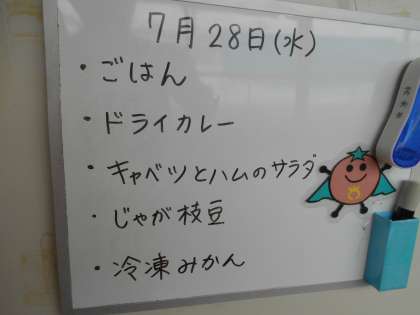 7月28日(水)
・ごはん
・ドライカレー
・キャベツとハムのサラダ
・じゃが枝豆
・冷凍みかん